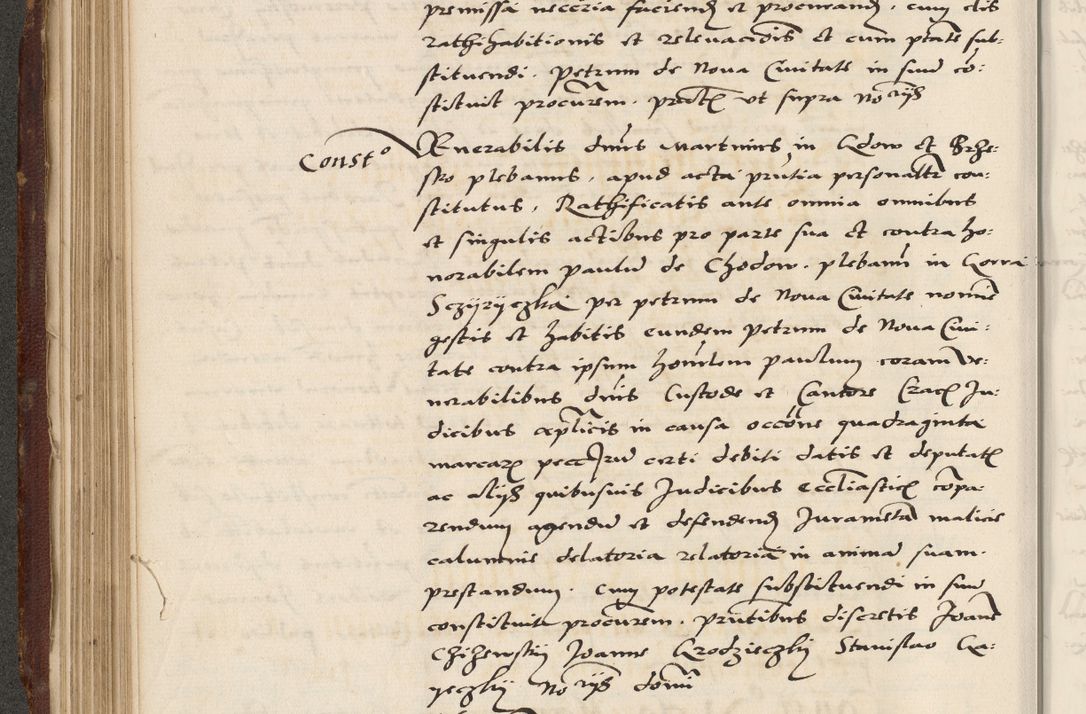 premissa necceria faciend et procurand. cum clis
rathihabitionis et relevacionis et cum ptate sub:
stituendi. Petrum de Nova Civitate in suu co:
stituit procurem. pntt ut supra Noriis
Consto Venerabilis dnus Martinus in Gdow et Brze:
sko plebanus, apud acta pntia personalr con:
stitutus, Rathificatis ante omnia omnibus
et singulis actibus pro parte sua et contra ho:
norabilem paulu de Chodow. plebanu in Gorra
Sczyryczka per petrum de Nova Civitate nomie
gestis et habitis eundem petrum de Nova Civi:
tate contra ipsum honlem paulum coram Ve:
nerabilibus dnis Custode et Cantore Crac Ju:
dicibus aplicis in causa occone quadraginta
marcar pecc Jrud certi debiti datis et deputat
ac alijs quibusuis Judicibus eccliastic compa:
rendum agendu et defendend Juramta malicie
calumnie delatoria relatoria in anima suam.
prestandum. Cum potestate substituendi in suu
constituit procurem. pntibus discretis Joane
Chizewskij Joanne Grodzieczkij Stanislao Ga:
yeczkij Noriis domi